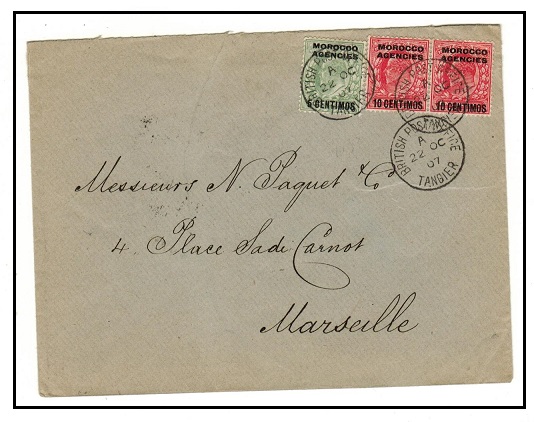 MOROCCO AGENCIES
5 CENTIMOS
MOROCCO AGENCIES
10 CENTIMOS
MOROCCO AGENCIES
10 CENTIMOS
BRITISH POST OFFICE
A
22 OC
07
TANGIER
Messieurs N. Paquet & Co
4. Place Sadi Carnot
Marseille